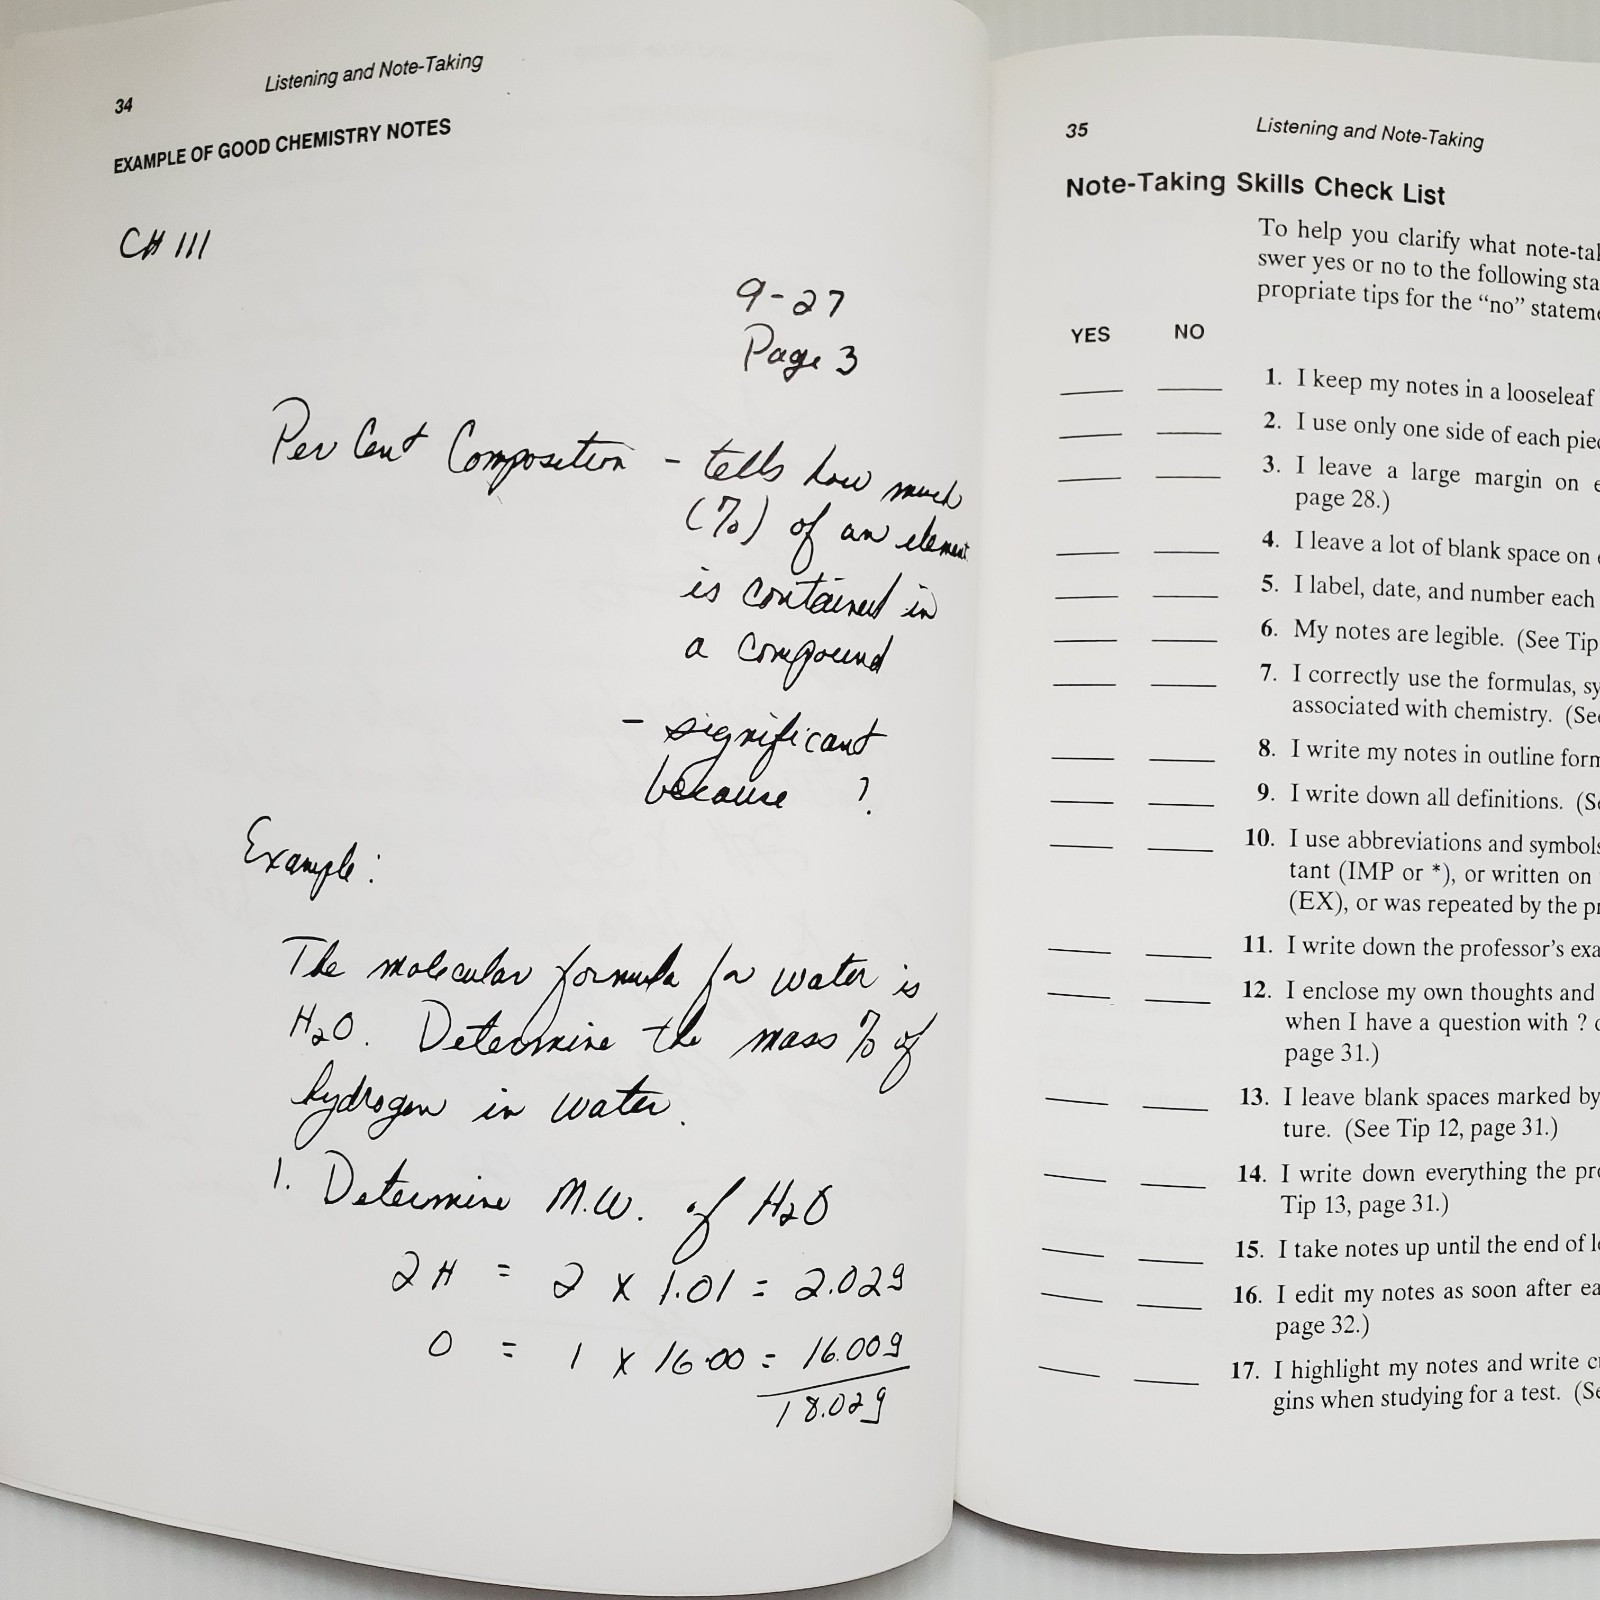 34
Listening and Note-Taking
EXAMPLE OF GOOD CHEMISTRY NOTES
CH 111
9-27
Page 3
Per Cent Composition - tells how much
(%) of an element
is contained in
a compound
- significant
because ?
Example:
The molecular formula for water is
H2O. Determine the mass % of
hydrogen in water.
1. Determine M.W. of H2O
2H = 2 x 1.01 = 2.02g
O = 1 x 16.00 = 16.00g
18.02g
35
Listening and Note-Taking
Note-Taking Skills Check List
To help you clarify what note-tak
swer yes or no to the following sta
propriate tips for the “no” stateme
YES NO
1. I keep my notes in a looseleaf
2. I use only one side of each piec
3. I leave a large margin on e
page 28.)
4. I leave a lot of blank space on
5. I label, date, and number each
6. My notes are legible. (See Tip
7. I correctly use the formulas, sy
associated with chemistry. (See
8. I write my notes in outline form
9. I write down all definitions. (Se
10. I use abbreviations and symbols
tant (IMP or *), or written on
(EX), or was repeated by the pr
11. I write down the professor’s exa
12. I enclose my own thoughts and
when I have a question with ? o
page 31.)
13. I leave blank spaces marked by
ture. (See Tip 12, page 31.)
14. I write down everything the pro
Tip 13, page 31.)
15. I take notes up until the end of le
16. I edit my notes as soon after ea
page 32.)
17. I highlight my notes and write cu
gins when studying for a test. (Se